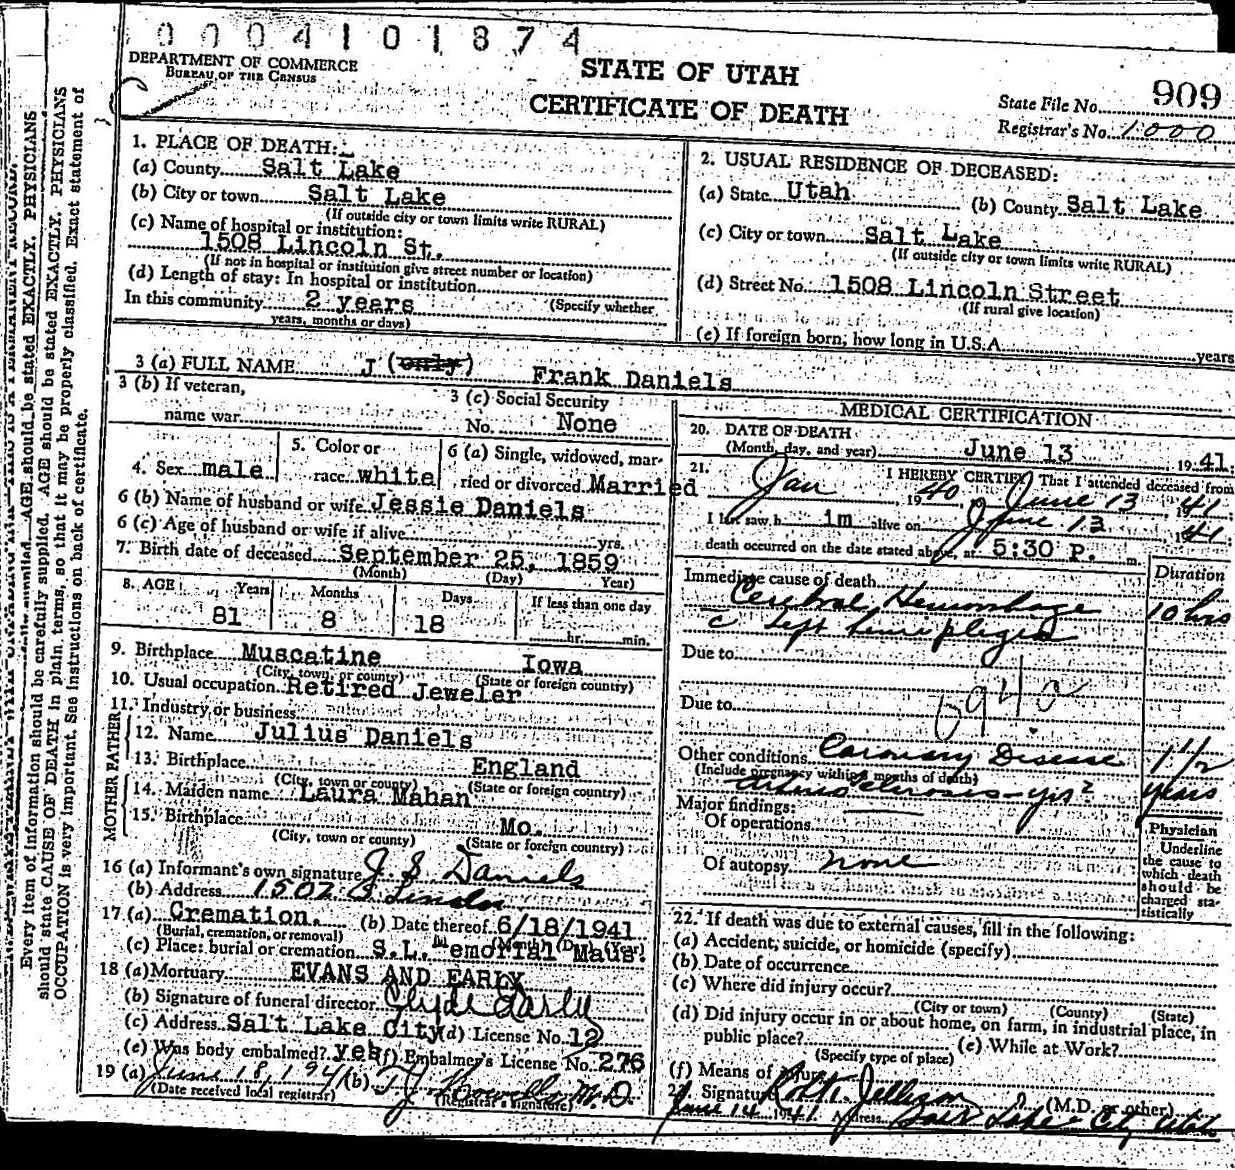 0004101874
DEPARTMENT OF COMMERCE
BUREAU OF THE CENSUS
STATE OF UTAH
CERTIFICATE OF DEATH
State File No. 909
Registrar's No. 1000
1. PLACE OF DEATH:
(a) County Salt Lake
(b) City or town Salt Lake
(If outside city or town limits write RURAL)
(c) Name of hospital or institution:
1508 Lincoln St.
(If not in hospital or institution give street number or location)
(d) Length of stay: In hospital or institution
In this community 2 years (Specify whether
years, months or days)
2. USUAL RESIDENCE OF DECEASED:
(a) State Utah (b) County Salt Lake
(c) City or town Salt Lake
(If outside city or town limits write RURAL)
(d) Street No. 1508 Lincoln Street
(If rural give location)
(e) If foreign born, how long in U.S.A. years
3 (a) FULL NAME J (only) Frank Daniels
3 (b) If veteran,
name war
3 (c) Social Security
No. None
4. Sex male
5. Color or
race white
6 (a) Single, widowed, mar-
ried or divorced Married
6 (b) Name of husband or wife Jessie Daniels
6 (c) Age of husband or wife if alive yrs.
7. Birth date of deceased September 25, 1859
(Month) (Day) Year)
8. AGE Years Months Days If less than one day
81 8 18 hr. min.
9. Birthplace Muscatine Iowa
(City, town, or county) (State or foreign country)
10. Usual occupation Retired Jeweler
11. Industry or business
FATHER
12. Name Julius Daniels
13. Birthplace England
(City, town or county) (State or foreign country)
MOTHER
14. Maiden name Laura Mahan
15. Birthplace Mo.
(City, town or county) (State or foreign country)
16 (a) Informant's own signature J. S. Daniels
(b) Address 1502 S Lincoln
17 (a) Cremation. (b) Date thereof 6/18/1941
(Burial, cremation, or removal) (Month) (Day) (Year)
(c) Place: burial or cremation S.L. Memorial Maus.
18 (a) Mortuary EVANS AND EARLY
(b) Signature of funeral director Clyde Early
(c) Address Salt Lake City (d) License No. 12
(e) Was body embalmed? yes (f) Embalmer's License No. 276
19 (a) June 18, 1941 (b) M.D.
(Date received local registrar) (Registrar's signature)
MEDICAL CERTIFICATION
20. DATE OF DEATH
(Month, day, and year) June 13 1941
21. I HEREBY CERTIFY That I attended deceased from
Jan 1940, June 13 1941
I last saw h im alive on June 13 1941
death occurred on the date stated above, at 5:30 P. m.
Immediate cause of death Duration
Cerebral Hemorrhage 10 hrs
c left hemiplegia
Due to
Due to
Other conditions Coronary Disease 1 1/2
(Include pregnancy within 3 months of death)
arteriosclerosis - yrs? years
Major findings:
Of operations
Of autopsy none
Physician
Underline
the cause to
which death
should be
charged sta-
tistically
22. If death was due to external causes, fill in the following:
(a) Accident, suicide, or homicide (specify)
(b) Date of occurrence
(c) Where did injury occur?
(City or town) (County) (State)
(d) Did injury occur in or about home, on farm, in industrial place, in
public place? (e) While at Work?
(Specify type of place)
(f) Means of injury
23. Signature (M.D. or other)
June 14 1941 Address Salt Lake City Utah
Every item of information should be carefully supplied. AGE should be stated EXACTLY. PHYSICIANS
should state CAUSE OF DEATH in plain terms, so that it may be properly classified. Exact statement of
OCCUPATION is very important. See instructions on back of certificate.